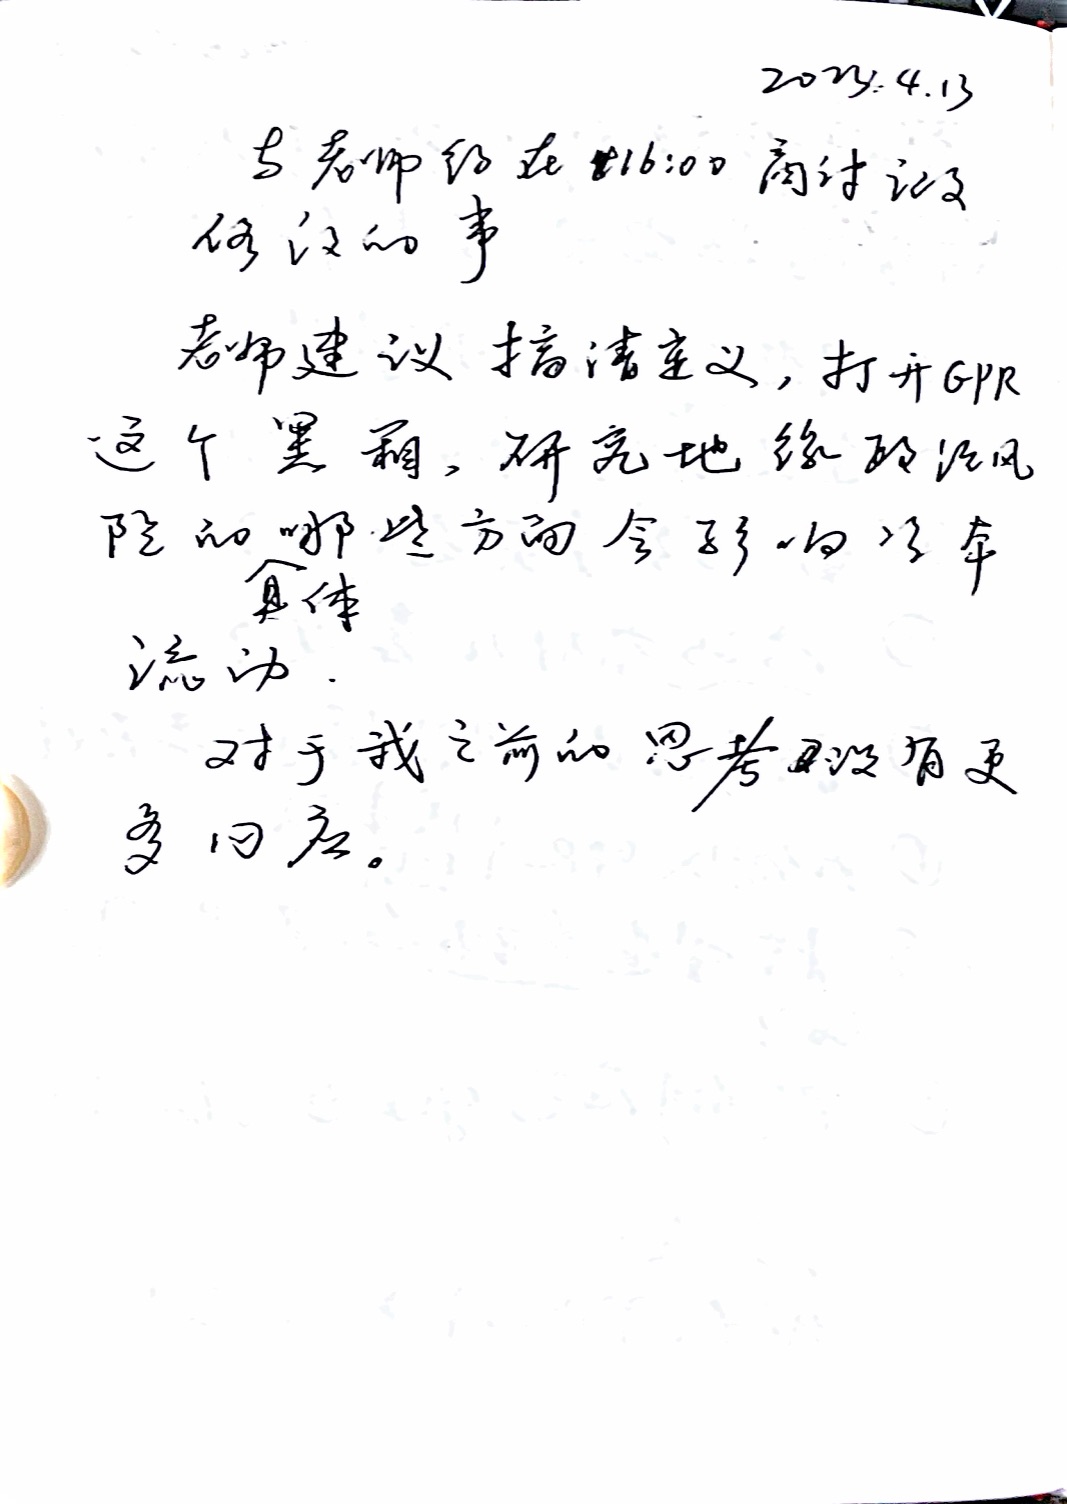 2023.4.13
与老师约在16:00商讨论文
修改的事
老师建议搞清定义，打开GPR
这个黑箱，研究地缘政治风
险的哪些方面会影响资本
具体
流动.
对于我之前的思考没有更
多回应。